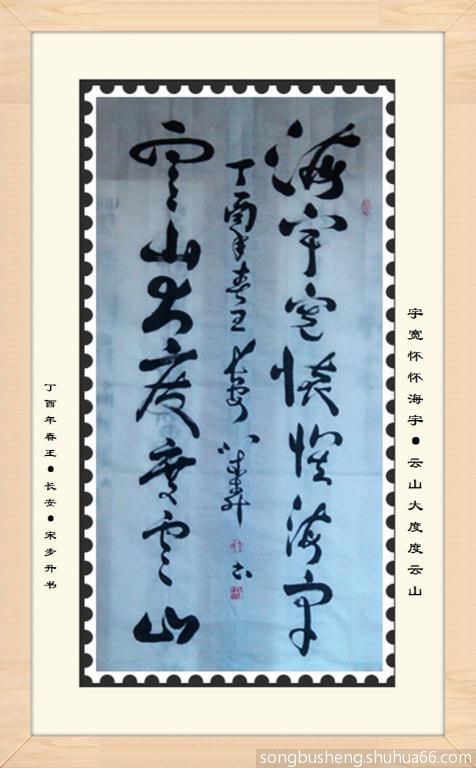 宇宽怀怀海宇●云山大度度云山
海宇宽怀怀海宇
丁酉年春王长安宋步升书
雲山大度度雲山
丁酉年春王●长安●宋步升书
songbusheng.shuhua66.com